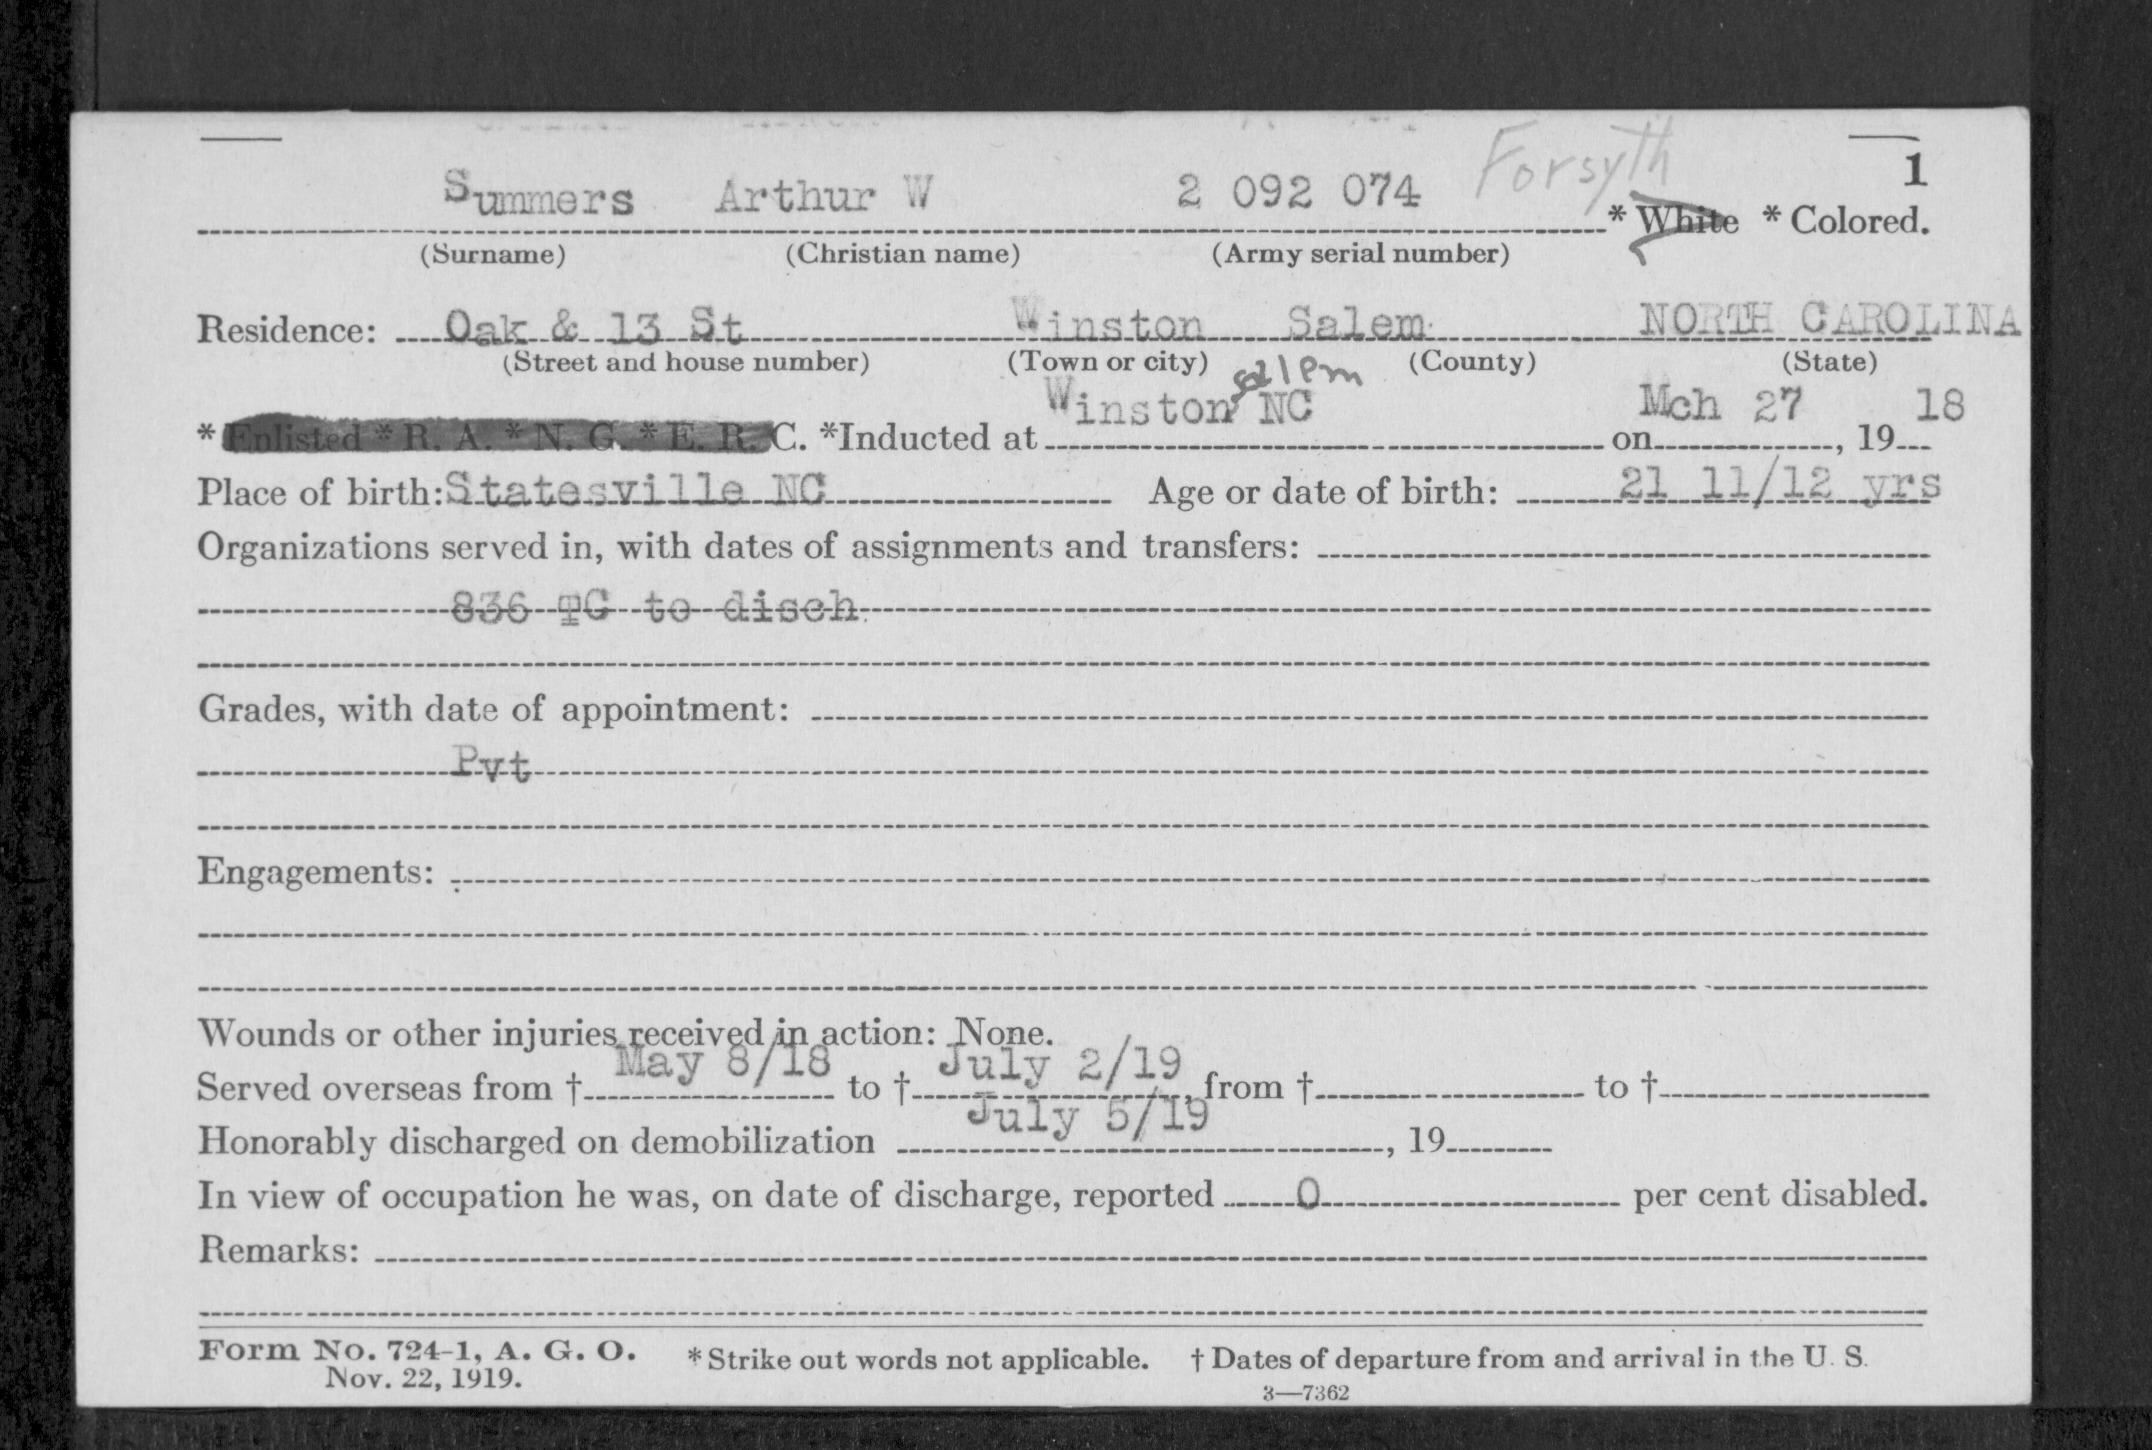 Forsyth
1
Summers Arthur W 2 092 074 * White * Colored.
(Surname) (Christian name) (Army serial number)
Residence: Oak & 13 St Winston Salem NORTH CAROLINA
(Street and house number) (Town or city) (County) (State)
Salem
Winston NC Mch 27 18
* Enlisted * R. A. * N. G. * E. R. C. *Inducted at on , 19
Place of birth: Statesville NC Age or date of birth: 21 11/12 yrs
Organizations served in, with dates of assignments and transfers:
836 TC to disch
Grades, with date of appointment:
Pvt
Engagements:
Wounds or other injuries received in action: None.
May 8/18 July 2/19
Served overseas from † to † , from † to †
July 5/19
Honorably discharged on demobilization , 19
In view of occupation he was, on date of discharge, reported 0 per cent disabled.
Remarks:
Form No. 724-1, A. G. O. * Strike out words not applicable. † Dates of departure from and arrival in the U. S.
Nov. 22, 1919.
3—7362